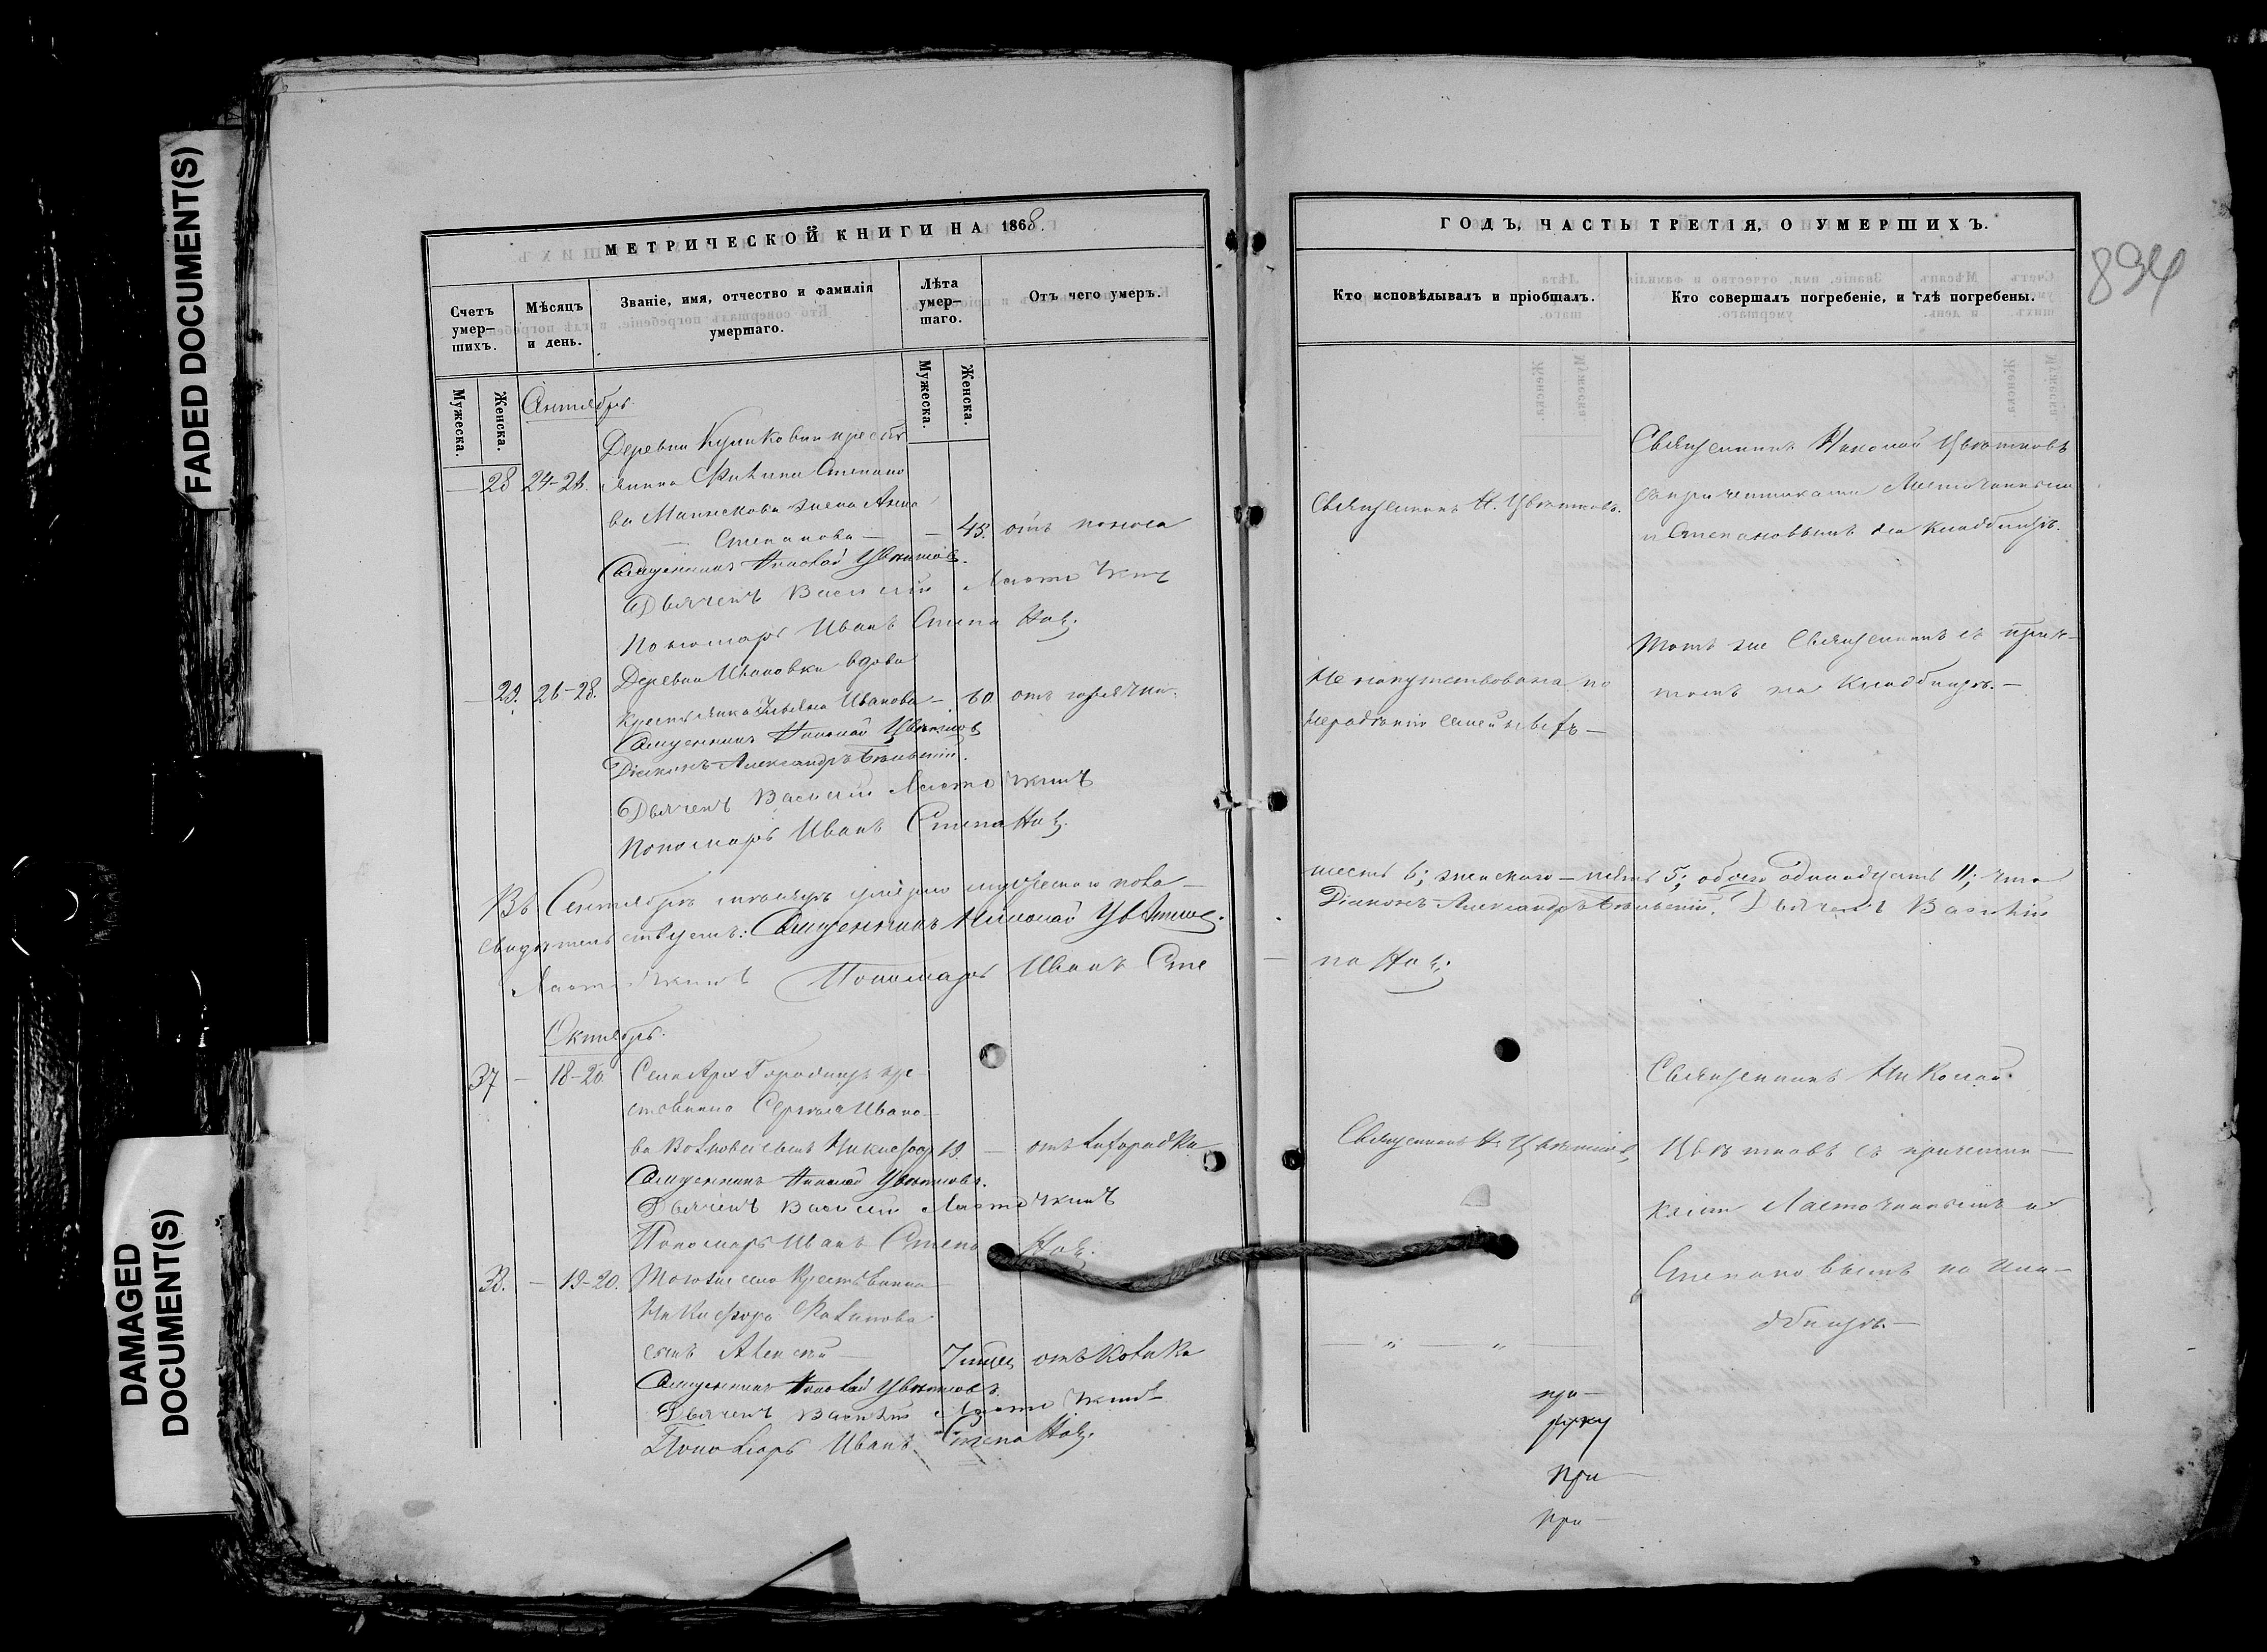 FADED DOCUMENT(S)
DAMAGED
DOCUMENT(S)
МЕТРИЧЕСКОЙ КНИГИ НА 1868.
Счетъ умер-шихъ.
Мужеска.
Женска.
Мѣсяцъ и день.
Званіе, имя, отчество и фамилія умершаго.
Лѣта умер-шаго.
Мужеска.
Женска.
Отъ чего умеръ.
Сентябрь.
Деревни Куликовки кресть
— 28 24-26. янина Филипа Степано
ва жена Анна
— Степанова — — 45. отъ поноса
Священникъ Николай Цвѣтковъ.
Дьячекъ Василій Ласточкинъ
Пономарь Иванъ Степановъ.
Деревни Ивановки вдова
— 29. 26-28. крестьянка Ульяна Иванова — 60 отъ горячки.
Священникъ Николай Цвѣтковъ
Діаконъ Александръ
Дьячекъ Василій Ласточкинъ
Пономарь Иванъ Степановъ.
Въ Сентябрѣ мѣсяцѣ умерло мужескаго пола —
свидѣтельствуемъ: Священникъ Николай Цвѣтковъ.
Ласточкинъ Пономарь Иванъ Сте
Октябрь.
37 — 18-20. Села Городищъ кре
стьянина Сергѣя Ивано
ва сынъ Никифоръ 19. — отъ лихорадки
Священникъ Николай Цвѣтковъ.
Дьячекъ Василій Ласточкинъ
Пономарь Иванъ Степановъ.
38. — 19-20. Того же села крестьянина
Никифора Филипова
сынъ Алексѣй — 7 отъ
Священникъ Николай Цвѣтковъ.
Дьячекъ Василій Ласточкинъ
Пономарь Иванъ Степановъ.
ГОДЪ, ЧАСТЬ ТРЕТІЯ, О УМЕРШИХЪ.
894
Кто исповѣдывалъ и пріобщалъ.
Кто совершалъ погребеніе, и гдѣ погребены.
Священникъ Николай Цвѣтковъ
Священникъ Н. Цвѣтковъ. съ причетниками Ласточкинымъ
и Степановымъ на кладбищѣ.
Тотъ же Священникъ съ прич-
Не напутствована по томъ на кладбищѣ. —
нерадѣнію семейныхъ —
шесть 6; женскаго — пять 5; обоего одиннадцать 11; что
Діаконъ Александръ Дьячекъ Василій
пановъ.
Священникъ Николай
Священникъ Н. Цвѣтковъ, Цвѣтковъ съ причетни-
ками Ласточкинымъ и
Степановымъ на кла-
дбищѣ. —
— " — " —
при
при